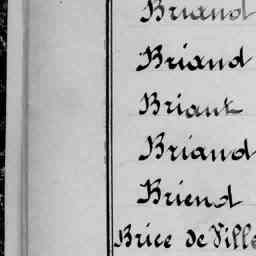 Briand
Briand
Briant
Briand
Briend
Brice de Ville